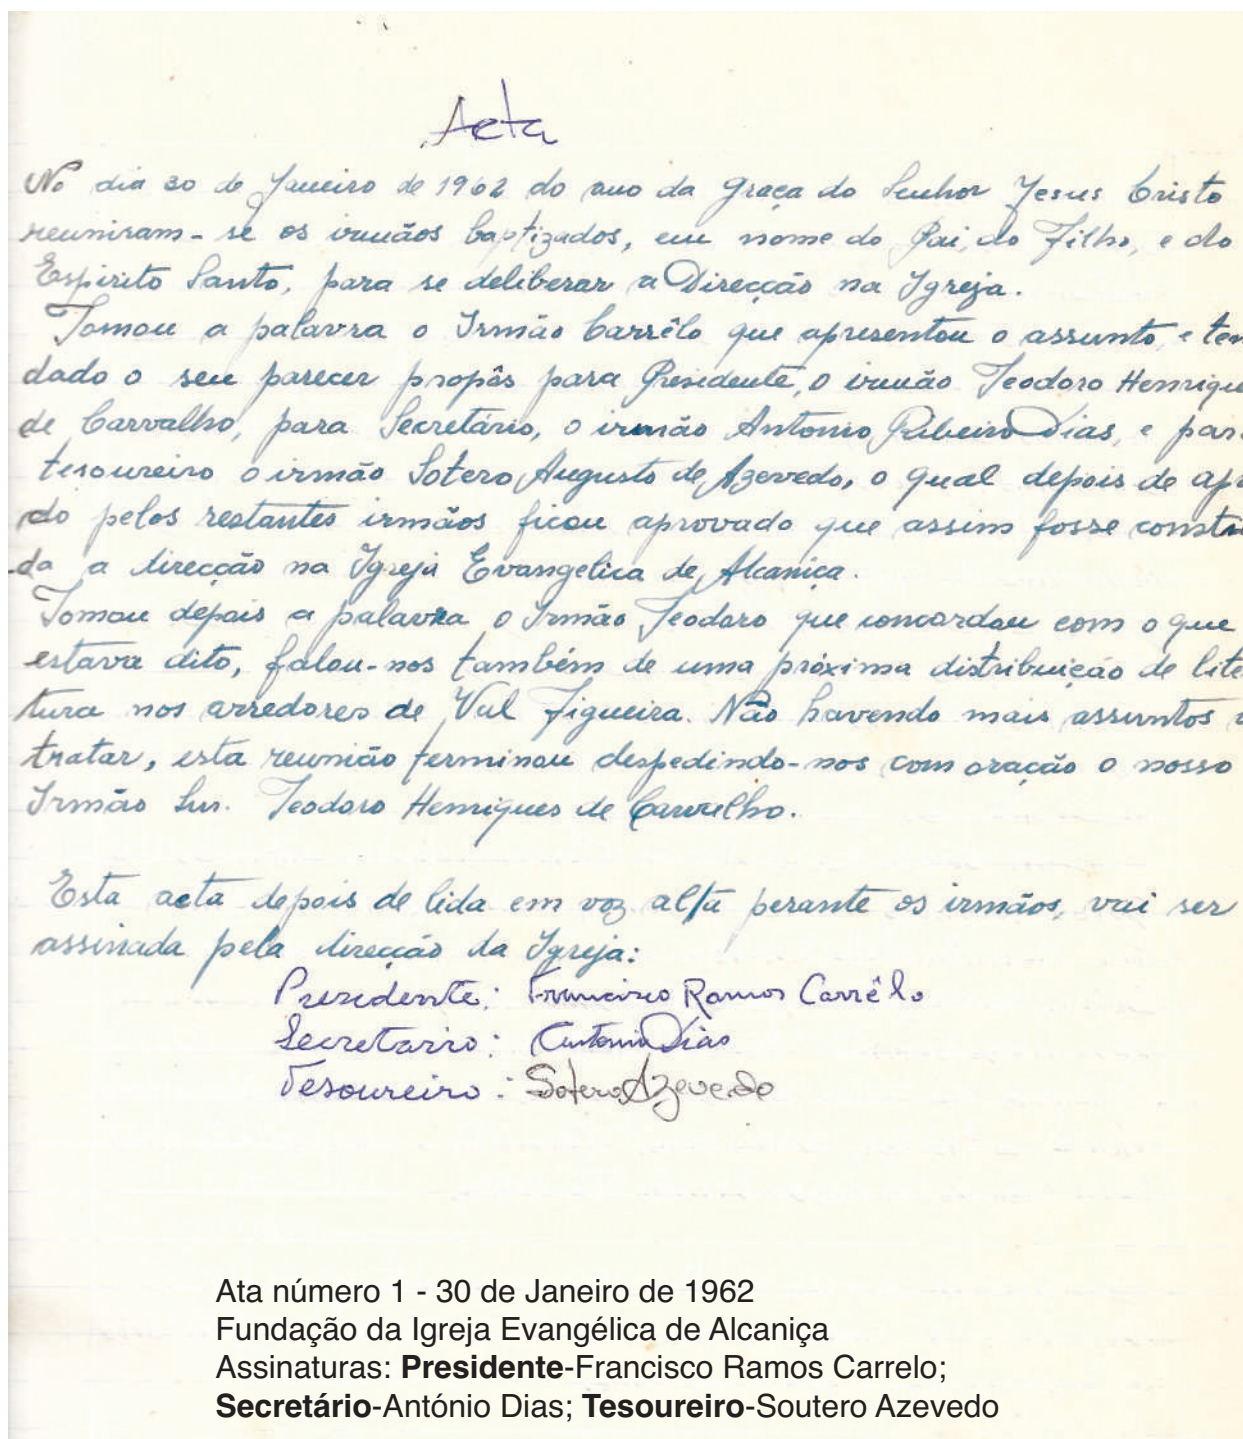 Acta
No dia 30 de Janeiro de 1962 do ano da Graça do Senhor Jesus Cristo
reuniram-se os irmãos baptizados, em nome do Pai, do Filho, e do
Espirito Santo, para se deliberar a Direcção na Igreja.
Tomou a palavra o Irmão Carrêlo que apresentou o assunto, e ten
dado o seu parecer propôs para Presidente, o irmão Teodoro Henriqu
de Carvalho, para Secretário, o irmão Antonio Ribeiro Dias, e par
tesoureiro o irmão Sotero Augusto de Azevedo, o qual depois de apr
do pelos restantes irmãos ficou aprovado que assim fosse constu
da a direcção na Igreja Evangelica de Alcaniça.
Tomou depois a palavra o Irmão Teodoro que concordou com o que
estava dito, falou-nos também de uma próxima distribuição de lite
tura nos arredores de Val Figueira. Não havendo mais assuntos a
tratar, esta reunião terminou despedindo-nos com oração o nosso
Irmão Snr. Teodoro Henriques de Carvalho.
Esta acta depois de lida em voz alta perante os irmãos, vai ser
assinada pela direcção da Igreja:
Presidente: Francisco Ramos Carrêlo
Secretario: Antonio Dias
Tesoureiro: Sotero Azevedo
Ata número 1 - 30 de Janeiro de 1962
Fundação da Igreja Evangélica de Alcaniça
Assinaturas: Presidente-Francisco Ramos Carrelo;
Secretário-António Dias; Tesoureiro-Soutero Azevedo